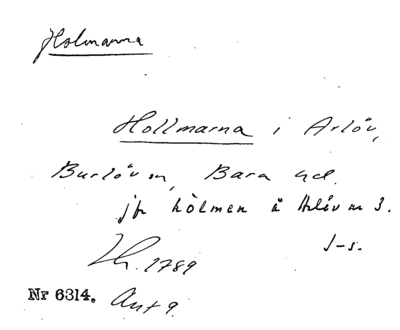 Holmarna
Hollmarna i Arlöv,
Burlöv sn, Bara hd.
jfr hòlmen å Arlöv nr 3.
J-s.
Lh. 1789
Nr 6314. Ant 9